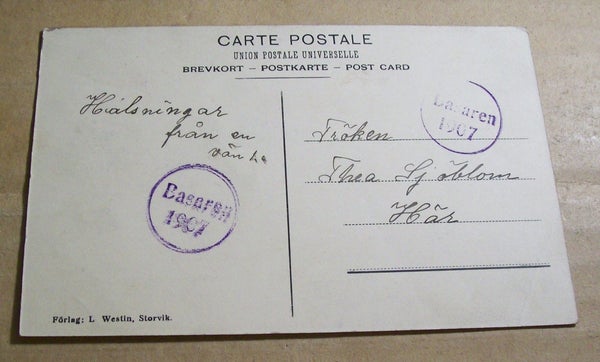 CARTE POSTALE
UNION POSTALE UNIVERSELLE
BREVKORT – POSTKARTE – POST CARD
Hälsningar
från en
vän
Basaren
1907
Basaren
1907
Fröken
Thea Sjöblom
Här
Förlag: L Westin, Storvik.